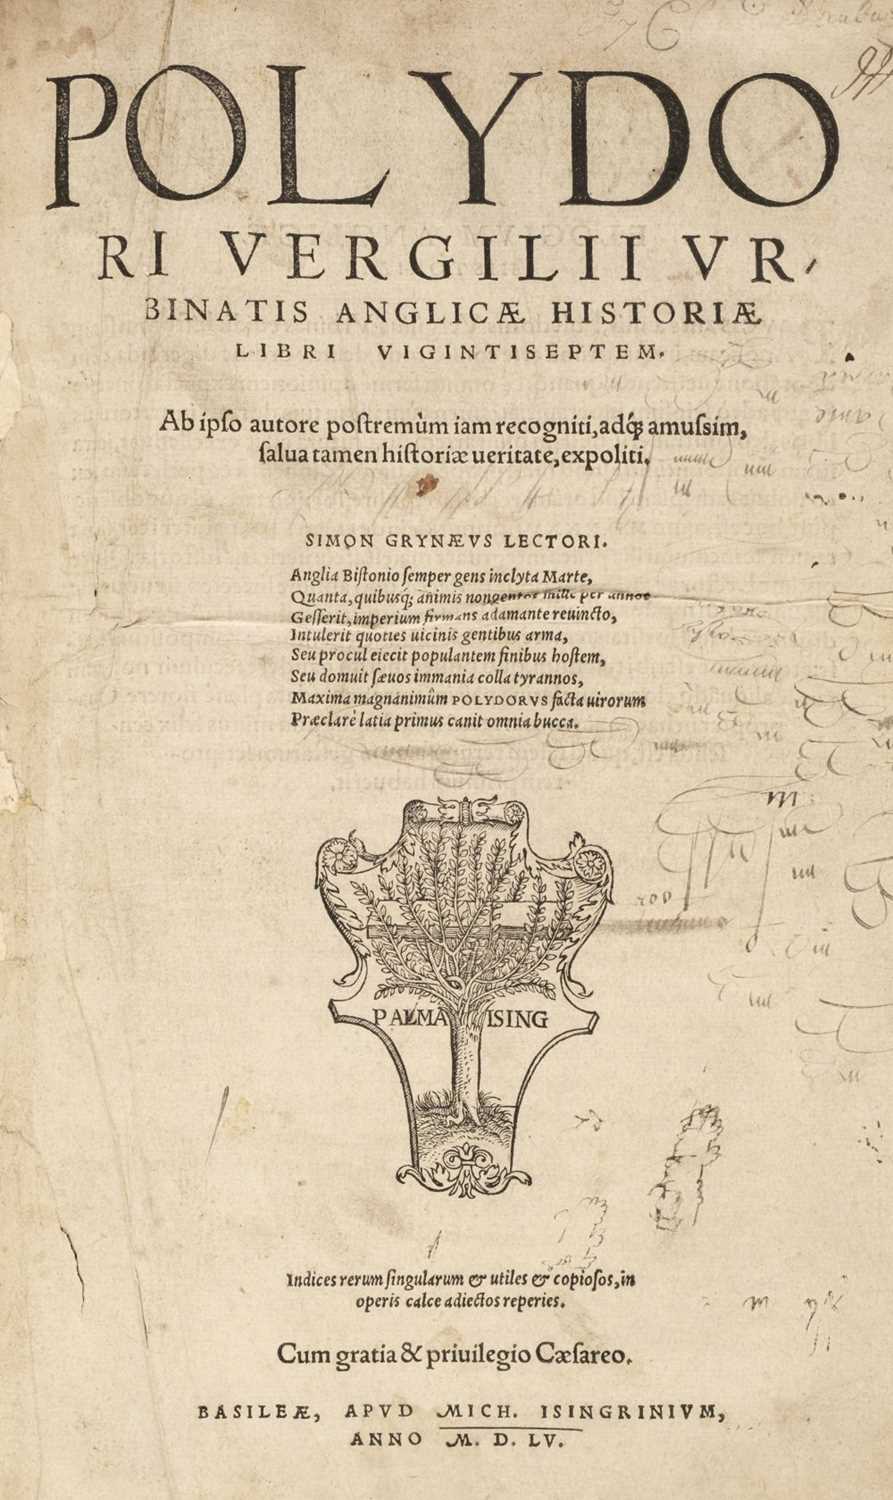 POLYDO
RI VERGILII VR-
BINATIS ANGLICÆ HISTORIÆ
LIBRI VIGINTISEPTEM.
Ab ipſo autore poſtremùm iam recogniti, adq́; amuſsim,
ſalua tamen hiſtoriæ ueritate, expoliti.
SIMON GRYNÆVS LECTORI.
Anglia Biſtonio ſemper gens inclyta Marte,
Quanta, quibusq; animis nongentos mille per annos
Geſſerit, imperium firmans adamante reuincto,
Intulerit quoties uicinis gentibus arma,
Seu procul eiecit populantem finibus hoſtem,
Seu domuit ſæuos immania colla tyrannos,
Maxima magnanimûm POLYDORVS facta uirorum
Præclarè latia primus canit omnia bucca.
PALMA ISING
Indices rerum ſingularum & utiles & copioſos, in
operis calce adiectos reperies.
Cum gratia & priuilegio Cæſareo.
BASILEÆ, APVD MICH. ISINGRINIVM,
ANNO M. D. LV.